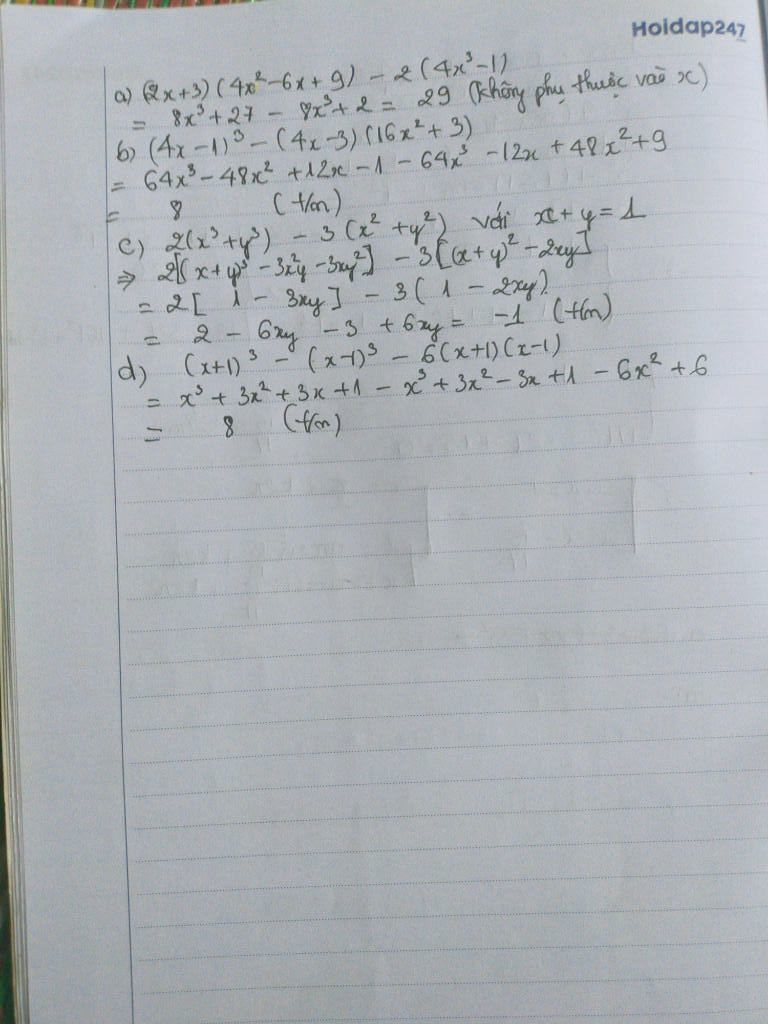 Hoidap247
a) (2x+3)(4x²-6x+9) - 2(4x³-1)
= 8x³+27 - 8x³+2 = 29 (không phụ thuộc vào x)
b) (4x-1)³ - (4x-3)(16x²+3)
= 64x³-48x²+12x-1-64x³-12x+48x²+9
= 8 (t/m)
c) 2(x³+y³) - 3(x²+y²) với x+y=1
⇒ 2[(x+y)³-3x²y-3xy²] - 3[(x+y)²-2xy]
= 2[1-3xy] - 3(1-2xy)
= 2-6xy-3+6xy = -1 (t/m)
d) (x+1)³ - (x-1)³ - 6(x+1)(x-1)
= x³+3x²+3x+1-x³+3x²-3x+1-6x²+6
= 8 (t/m)